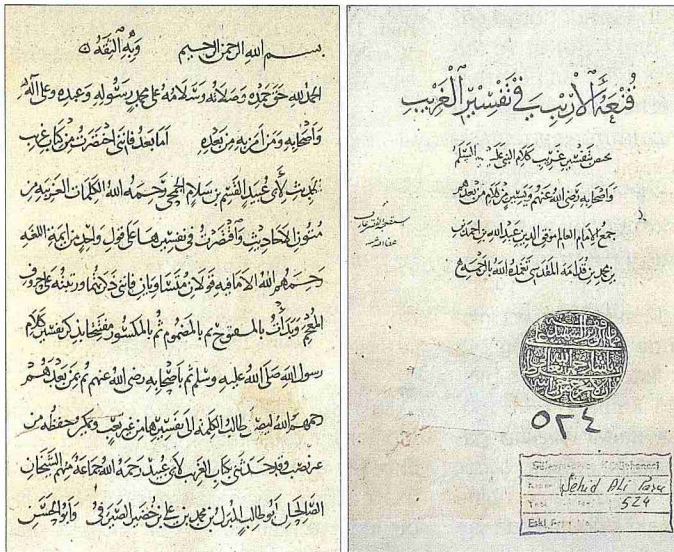 قنعة الأريب في تفسير الغريب
يختص بتفسير غريب كلام النبي عليه السلم
وأصحابه رضي الله عنهم ويسير من كلام من بعدهم
جمع الامام العالم موفق الدين عبد الله بن احمد بن
محمد بن قدامة المقدسي تغمده الله بالرحمة
٥٢٤
Süleymaniye Kütüphanesi
Şehid Ali Paşa
524
Eski
بسم الله الرحمن الرحيم وبه الثقة
الحمد لله حق حمده وصلاته وسلامه على محمد رسوله وعبده وعلى آله
وأصحابه ومن امن به من بعده اما بعد فانني اختصرت من كتاب غريب
الحديث لأبي عبيد القسم بن سلام الجمحي رحمه الله الكلمات الغريبة من
متون الاحاديث واقتصرت في تفسيرها على قول واحد من ايمة اللغة
رحمهم الله الا ما فيه قولان متساويان فانني ذكرتهما ورتبته على حروف
المعجم وبدأت بالمفتوح ثم بالمضموم ثم بالمكسور مفتتحا بذكر تفسير كلام
رسول الله صلى الله عليه وسلم ثم باصحابه رضي الله عنهم ثم بمن بعدهم
رحمهم الله ليصل طالب الكلمة الى تفسيرها من غير تعب ويكبر وحفظه من
غير نصب وقد حدثني بكتاب الغريب لأبي عبيد رحمه الله جماعة منهم الشيخان
الصالحان أبو طالب المبارك بن محمد بن علي بن خضير الصيرفي وأبو الحسن